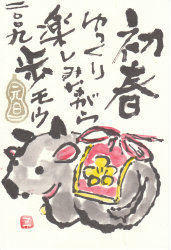 初春
ゆっくり
楽しみながら
歩モウ
二〇〇九
元旦